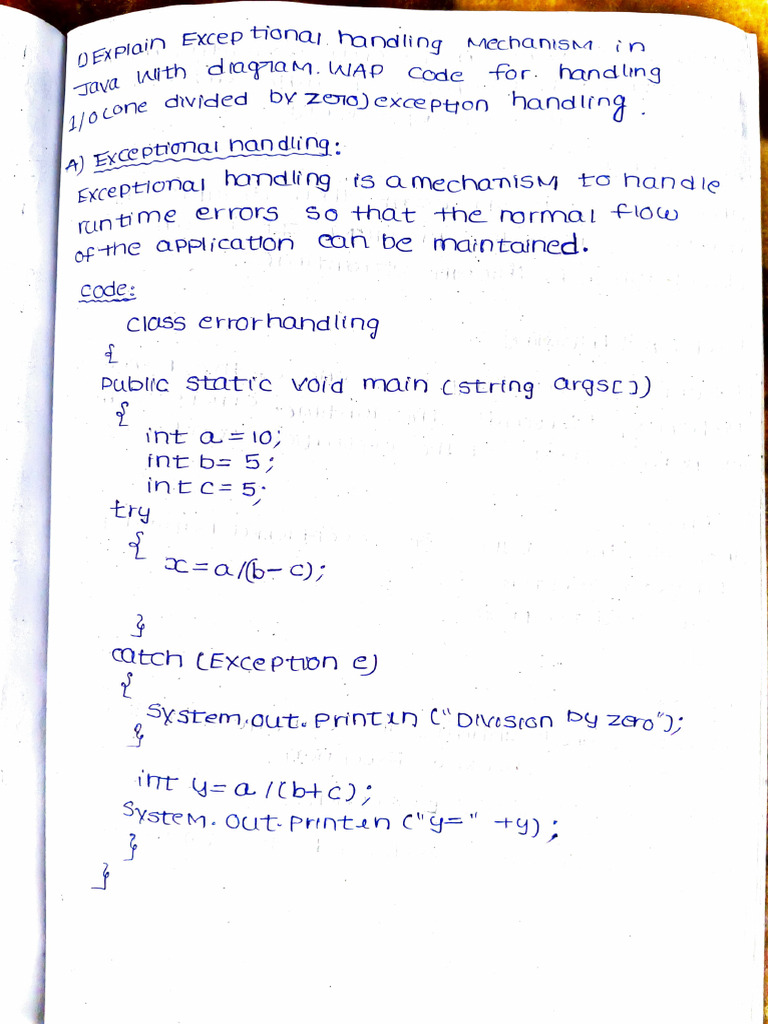 1) Explain Exceptional handling Mechanism in
Java with diagram. WAP code for handling
1/0 (one divided by zero) exception handling.
A) Exceptional handling:
Exceptional handling is a mechanism to handle
runtime errors so that the normal flow
of the application can be maintained.
code:
class errorhandling
{
public static void main (string args[])
{
int a = 10;
int b = 5;
int c = 5;
try
{
x = a/(b-c);
}
catch (Exception e)
{
System.out.println ("Division by zero");
}
int y = a/(b+c);
System.out.println ("y=" +y);
}
}